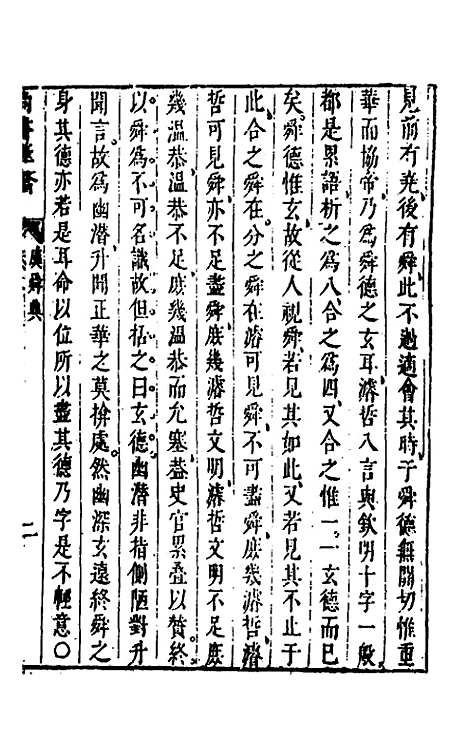 見前有堯後有舜此不過適會其時于舜德無關切惟重
華而協帝乃為舜德之玄耳濬哲八言與欽明十字一般
都是累語析之為八合之為四又合之惟一一玄德而已
矣舜德惟玄故從人視舜若見其如此又若見其不止于
此合之舜在分之舜在濬可見舜不可盡舜庶幾濬哲濬
哲可見舜亦不足盡舜庶幾濬哲文明濬哲文明不足庶
幾溫恭溫恭不足庶幾溫恭而允塞葢史官累疊以贊終
以舜為不可名識故但括之曰玄德幽潛非指側陋對升
聞言故為幽潛升聞正華之莫揜處然幽深玄遠終舜之
身其德亦若是耳命以位所以盡其德乃字是不輕意〇
尚書 舜典 二